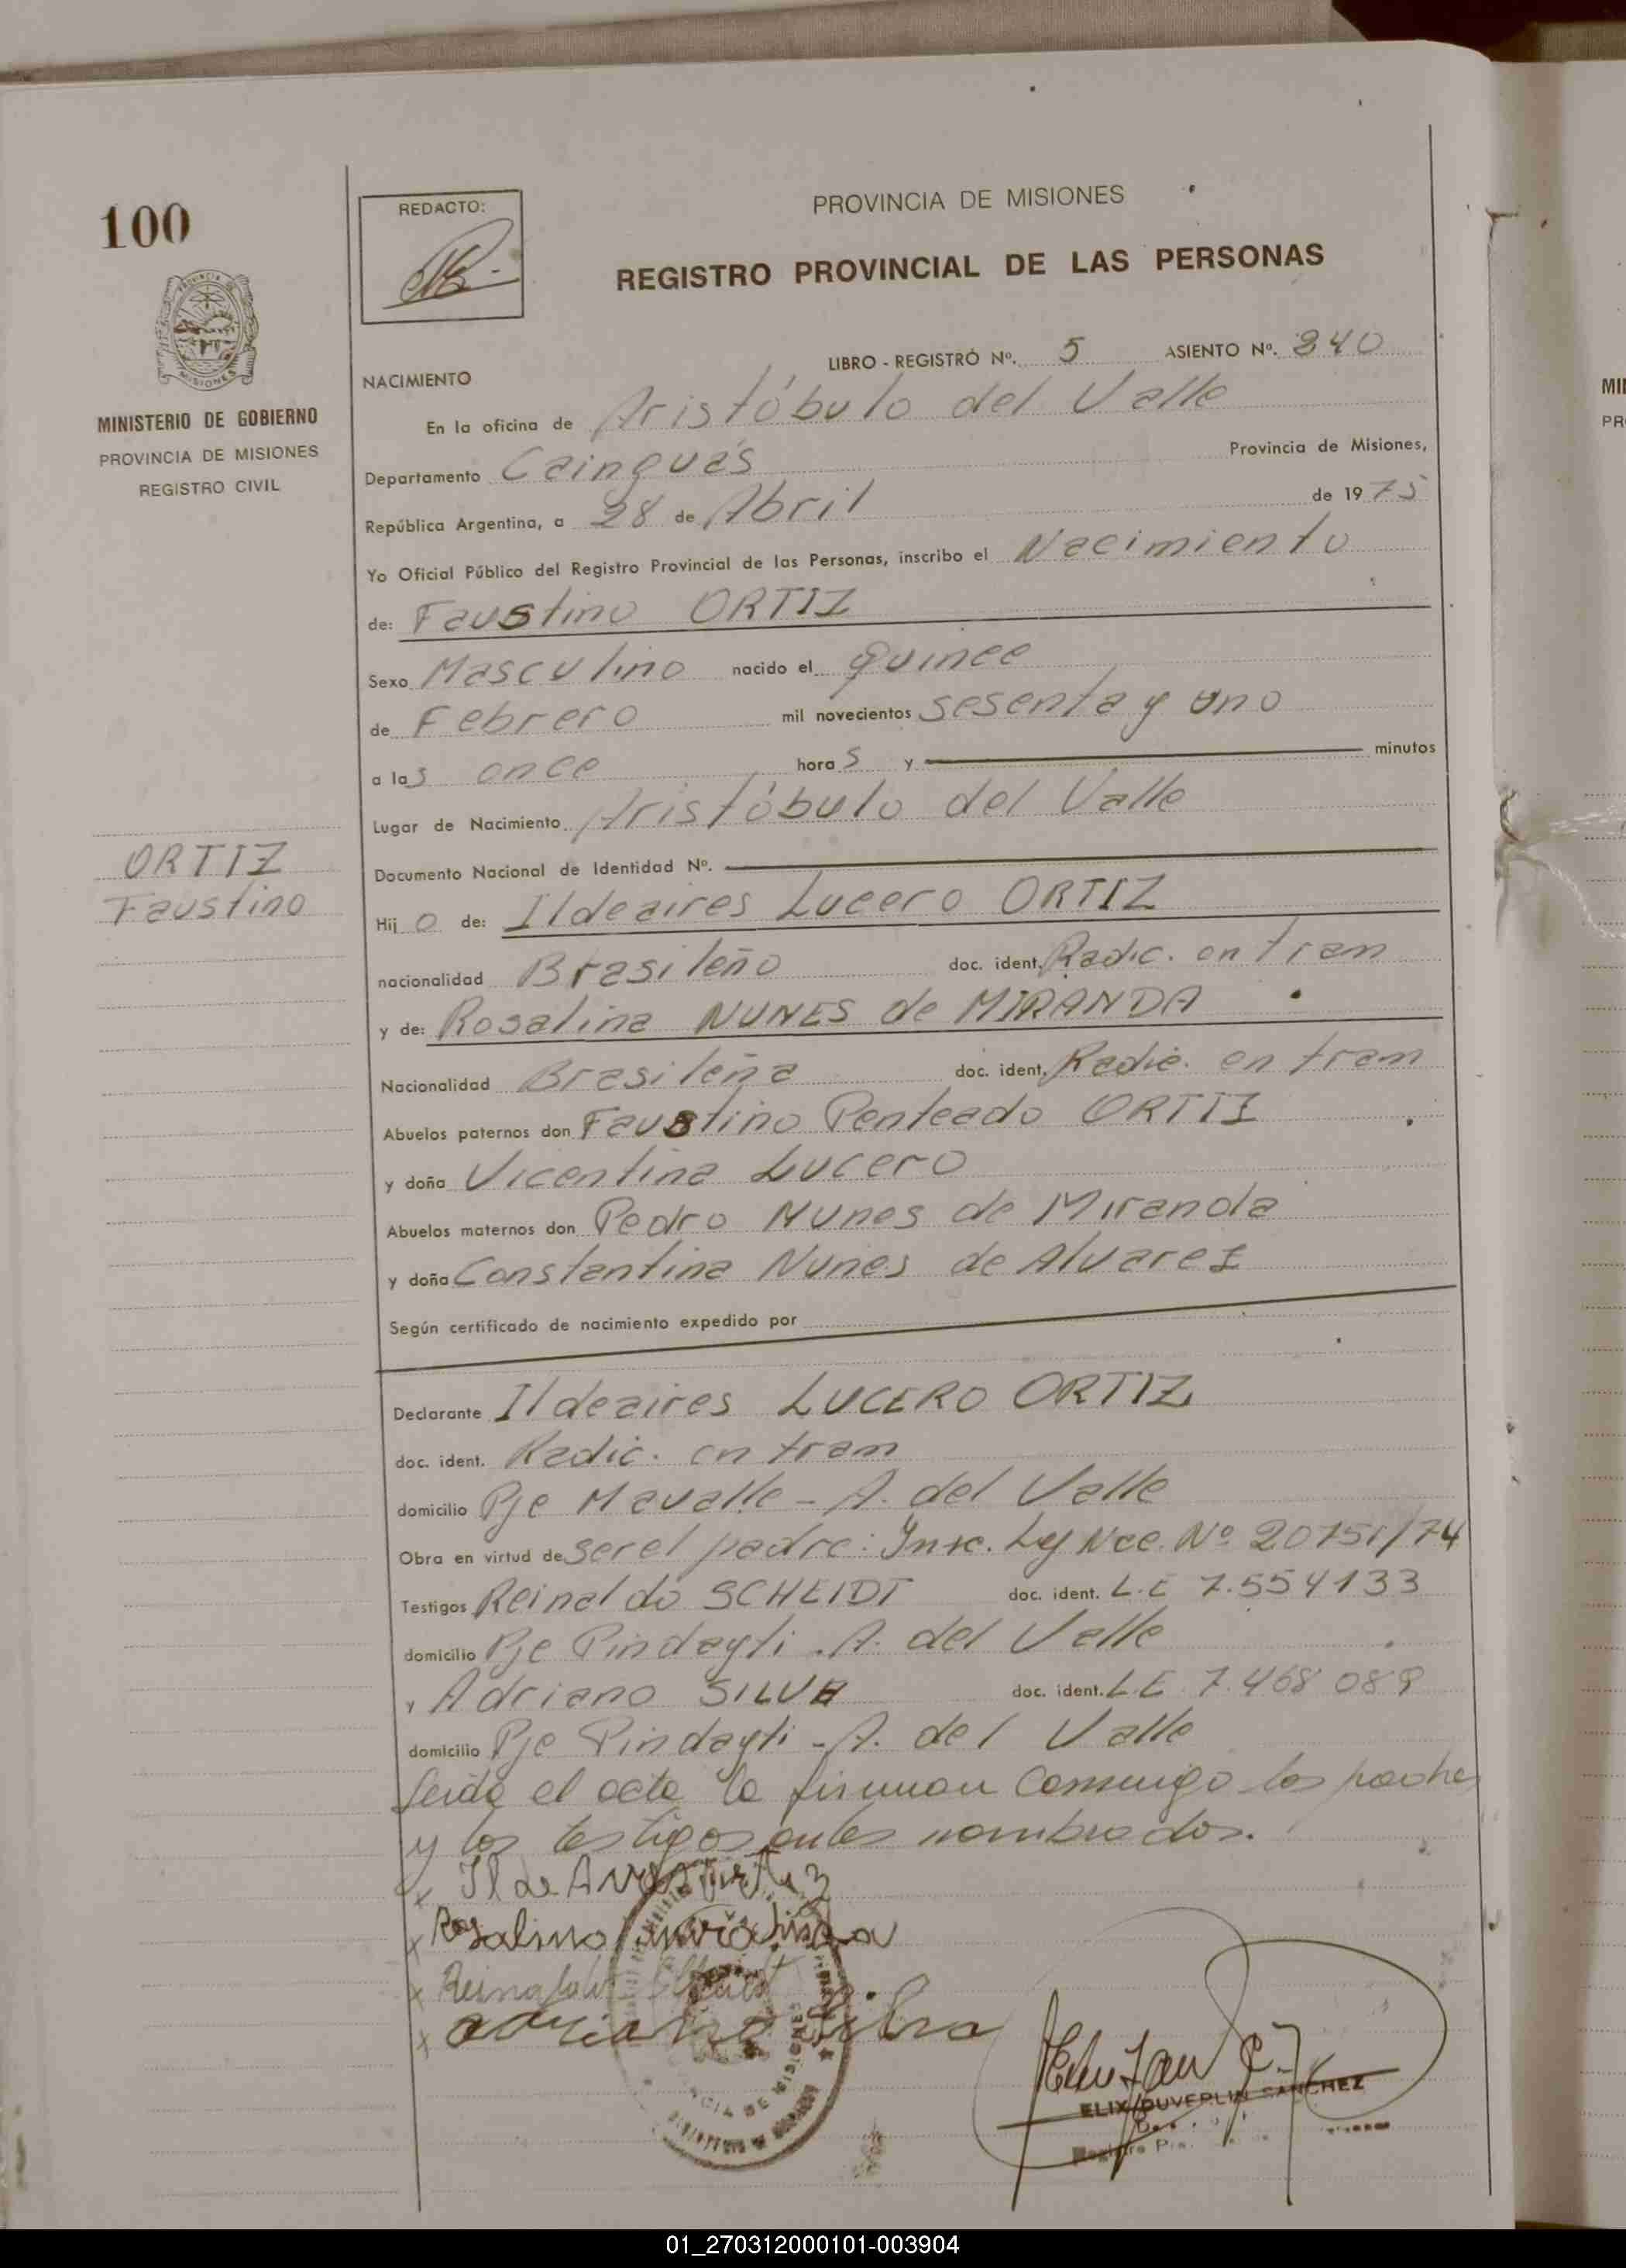 100
REDACTO:
PROVINCIA DE MISIONES
REGISTRO PROVINCIAL DE LAS PERSONAS
MISIONES
MINISTERIO DE GOBIERNO
PROVINCIA DE MISIONES
REGISTRO CIVIL
LIBRO - REGISTRO Nº. 5 ASIENTO Nº. 840
NACIMIENTO
En la oficina de Aristóbulo del Valle
Departamento Cainguás Provincia de Misiones,
República Argentina, a 28 de Abril de 1975
Yo Oficial Público del Registro Provincial de las Personas, inscribo el Nacimiento
de: Faustino ORTIZ
Sexo Masculino nacido el quince
de Febrero mil novecientos sesenta y uno
a las once horas y minutos
Lugar de Nacimiento Aristóbulo del Valle
Documento Nacional de Identidad Nº.
ORTIZ
Faustino
Hijo de: Ildeaires Lucero ORTIZ
nacionalidad Brasileño doc. ident. Radic. en tram
y de: Rosalina NUNES de MIRANDA
Nacionalidad Brasileña doc. ident. Radic. en tram
Abuelos paternos don Faustino Penteado ORTIZ
y doña Vicentina Lucero
Abuelos maternos don Pedro Nunes de Miranda
y doña Constantina Nunes de Alvarez
Según certificado de nacimiento expedido por
Declarante Ildeaires LUCERO ORTIZ
doc. ident. Radic. en tram
domicilio Pje Mavalle - A. del Valle
Obra en virtud de ser el padre: Insc. Ley Nac. Nº 20751/74
Testigos Reinaldo SCHEIDT doc. ident. L.E 7.554133
domicilio Pje Pindayti - A. del Valle
y Adriano SILVA doc. ident. L.E 7.468089
domicilio Pje Pindayti - A. del Valle
Leida el acta la firman conmigo los padres
y los testigos antes nombrados.
x
x Rosalino
x
x adriano Silva
ELIX DUVERLIN SANCHEZ
01_270312000101-003904